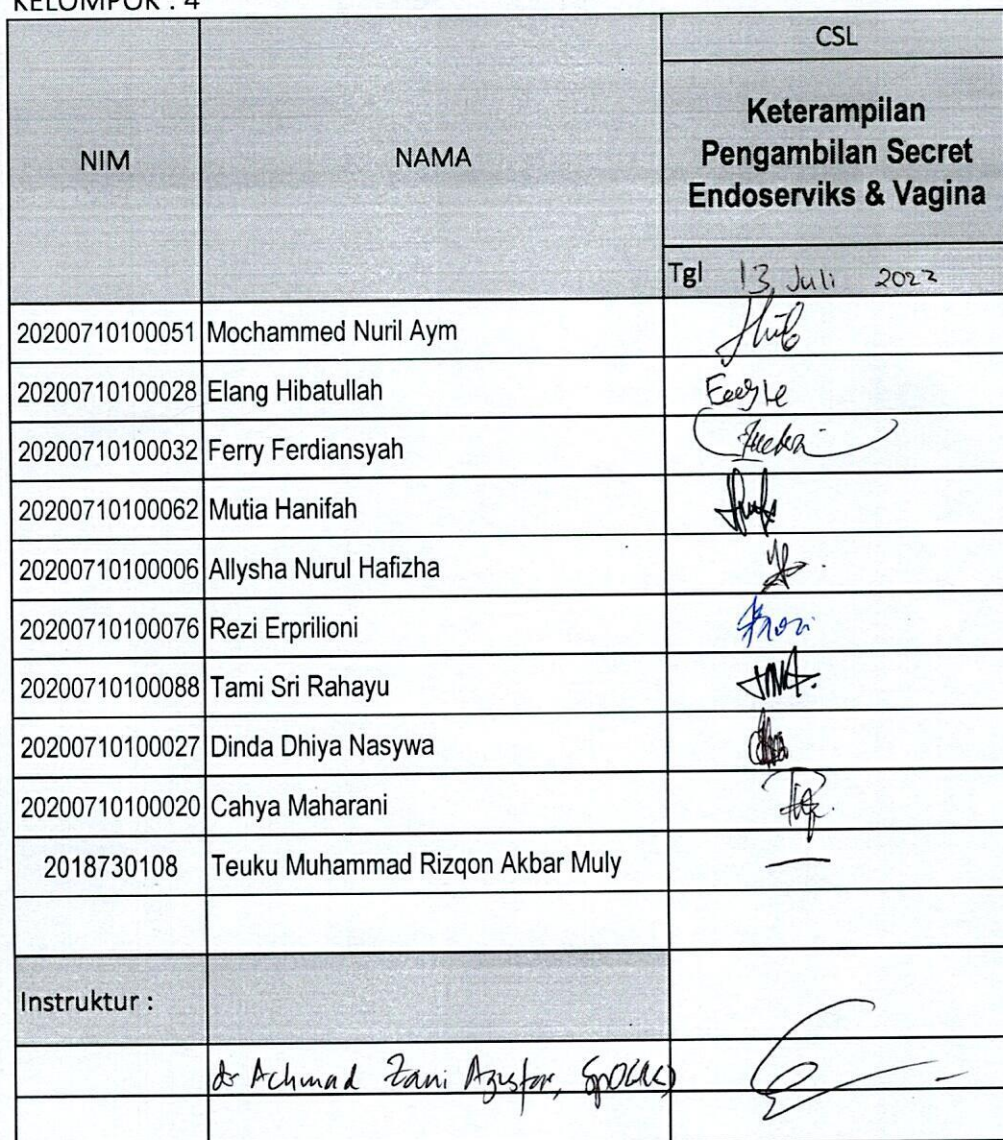 KELOMPOK : 4
CSL
NIM
NAMA
Keterampilan
Pengambilan Secret
Endoserviks & Vagina
Tgl 13, Juli 2022
20200710100051 Mochammed Nuril Aym
20200710100028 Elang Hibatullah
20200710100032 Ferry Ferdiansyah
20200710100062 Mutia Hanifah
20200710100006 Allysha Nurul Hafizha
20200710100076 Rezi Erprilioni
20200710100088 Tami Sri Rahayu
20200710100027 Dinda Dhiya Nasywa
20200710100020 Cahya Maharani
2018730108 Teuku Muhammad Rizqon Akbar Muly
Instruktur :
dr Achmad Zani Agusfar, SpOG(K)